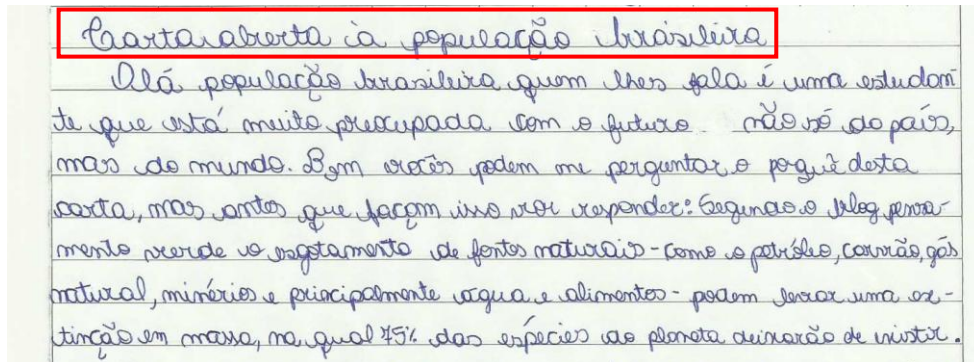 Carta aberta à população brasileira
Olá população brasileira quem lhes fala é uma estudan
te que está muito preocupada com o futuro não só do país,
mas do mundo. Bem vocês podem me perguntar o porquê desta
carta, mas antes que façam isso vou responder: Segundo o blog pensa-
mento verde o esgotamento de fontes naturais - como o petróleo, carvão, gás
natural, minérios e principalmente água e alimentos - podem levar uma ex-
tinção em massa, na qual 75% das espécies do planeta deixarão de existir.